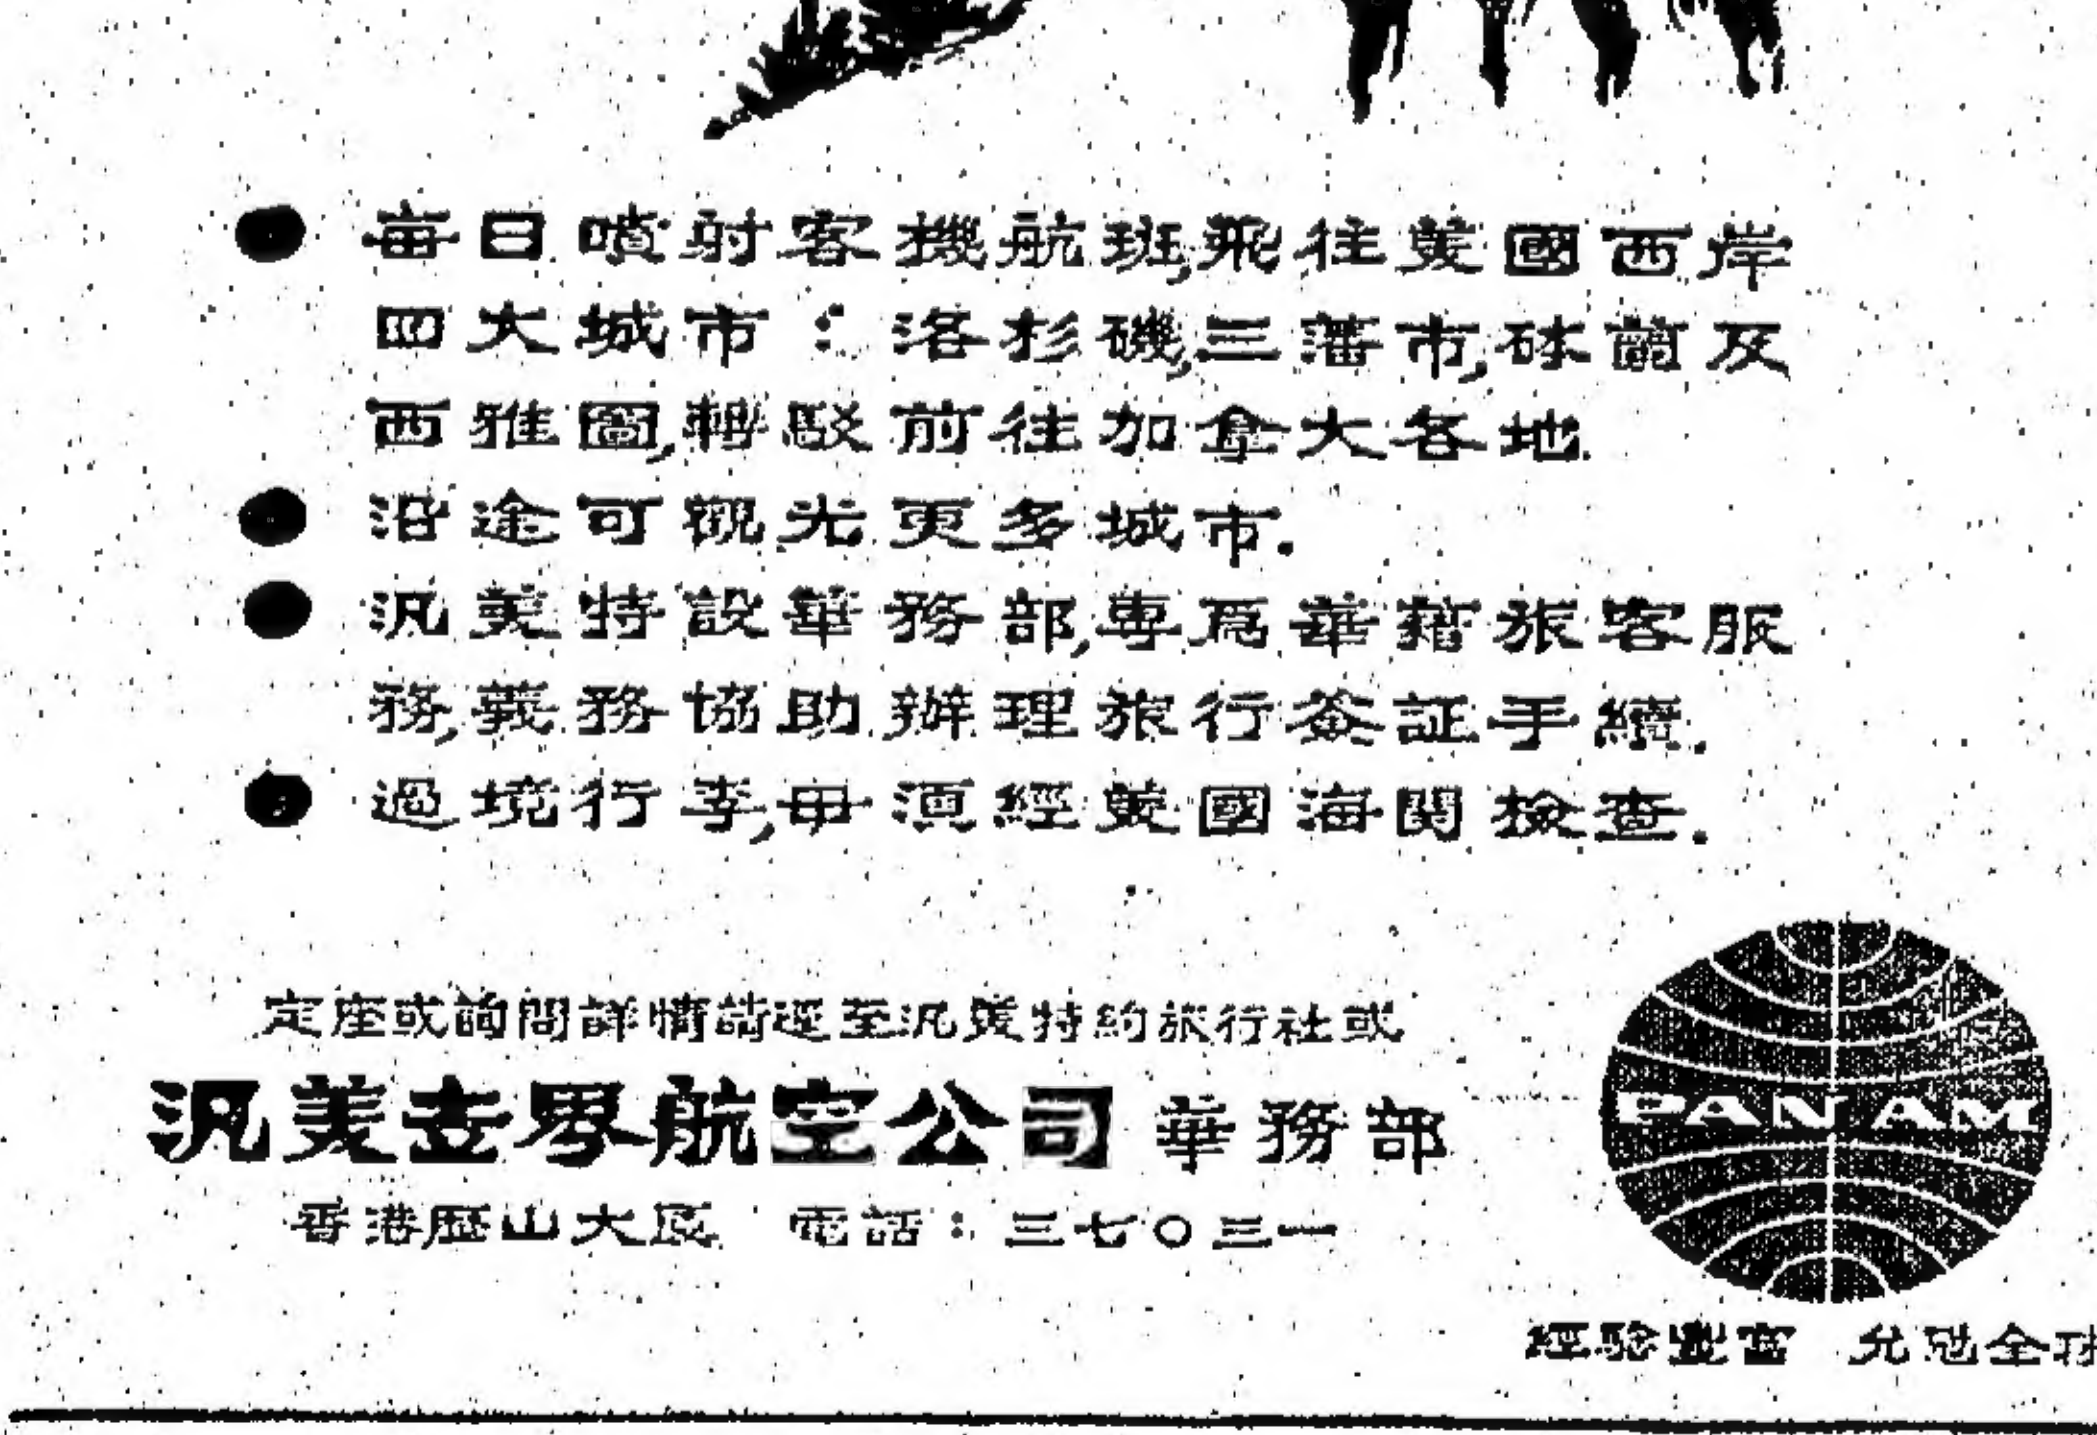 ● 每日噴射客機航班,飛往美國西岸
四大城市：洛杉磯,三藩市,砵蘭及
西雅圖,轉駁前往加拿大各地.
● 沿途可觀光更多城市.
● 汎美特設華務部,專為華籍旅客服
務,義務協助辦理旅行簽証手續.
● 過境行李,毋須經美國海關檢查.
定座或詢問詳情請逕至汎美特約旅行社或
汎美世界航空公司 華務部
香港歷山大廈 電話：三七〇三一
PAN AM
經驗豐富 允冠全球